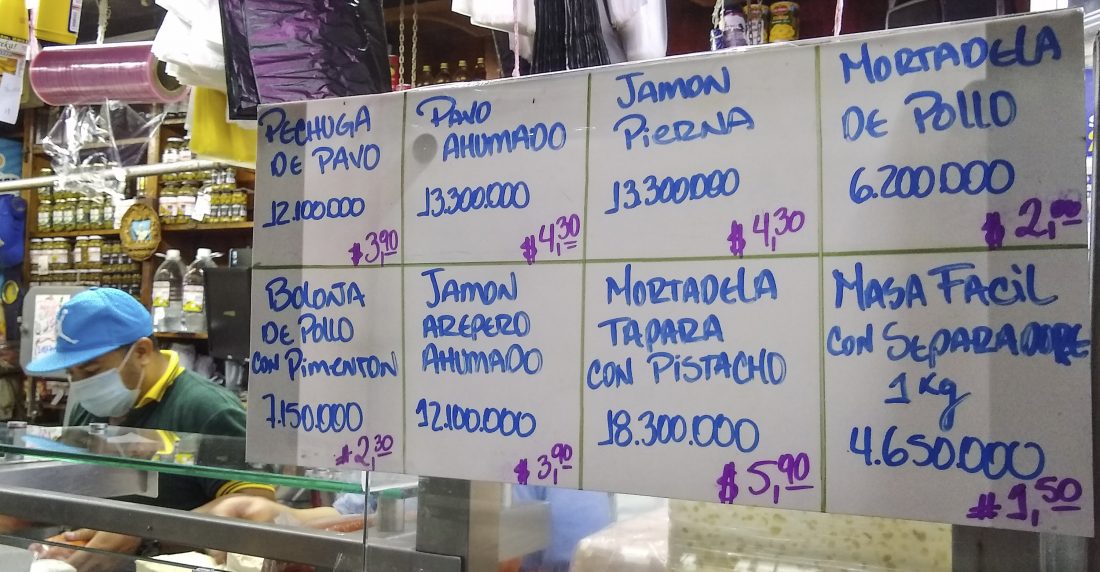 PECHUGA
DE PAVO
12.100.000
$3,90
PAVO
AHUMADO
13.300.000
$4,30
JAMON
PIERNA
13.300.000
$4,30
MORTADELA
DE POLLO
6.200.000
$2,00
BOLONJA
DE POLLO
CON PIMENTON
7.150.000
$2,30
JAMON
AREPERO
AHUMADO
12.100.000
$3,90
MORTADELA
TAPARA
CON PISTACHO
18.300.000
$5,90
MASA FACIL
CON SEPARADORE
1 Kg
4.650.000
$1,50